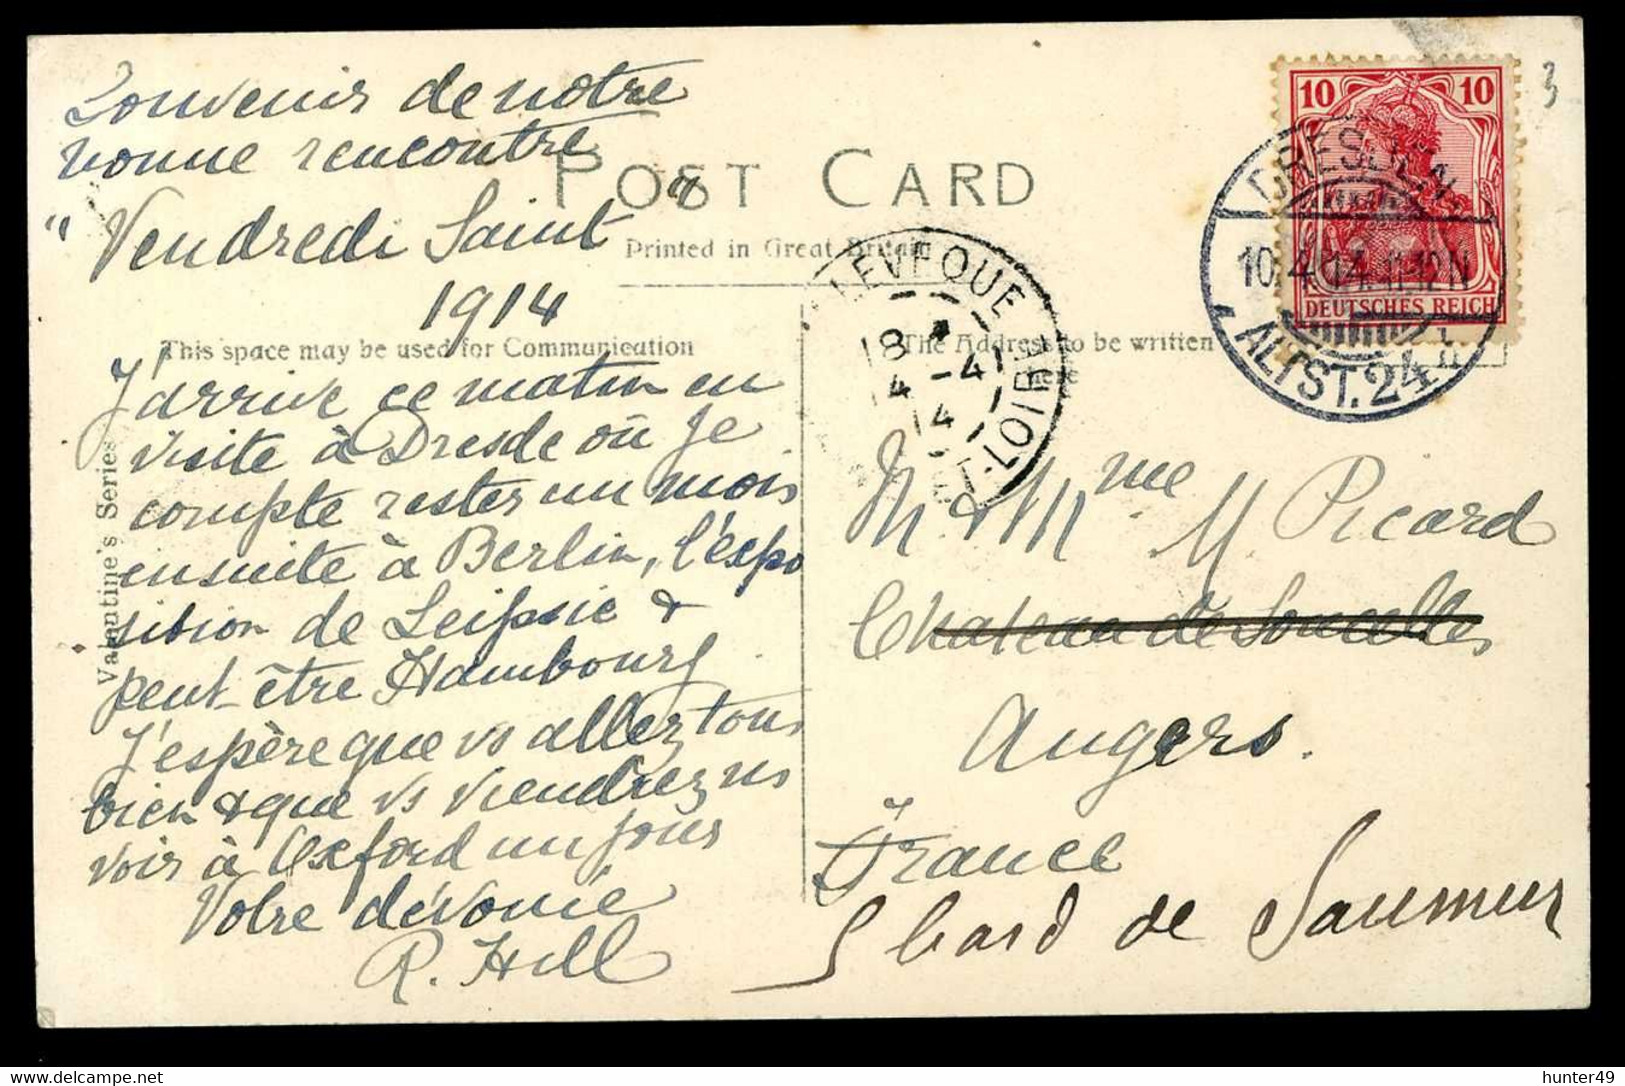 Souvenir de notre
bonne rencontre
POST CARD
"Vendredi Saint"
Printed in Great Britain
1914
This space may be used for Communication
The Address to be written
here
J'arrive ce matin en
visite à Dresde où je
compte rester un mois
ensuite à Berlin, l'expo
sition de Leipsic &
peut-être Hambourg
J'espère que vs allez tous
bien & que vs viendrez ns
voir à Oxford un jour
Votre dévouée
R. Hill
Valentine's Series
M. & Mme M. Picard
Chateau de Soucelles
Angers.
France
5 bard de Saumur
10 10
DEUTSCHES REICH
DRESDEN
10.4.14. 11-12 N
ALTST. 24
LEVEQUE
18
4 -4
14
ET-LOIRE
3
hunter49